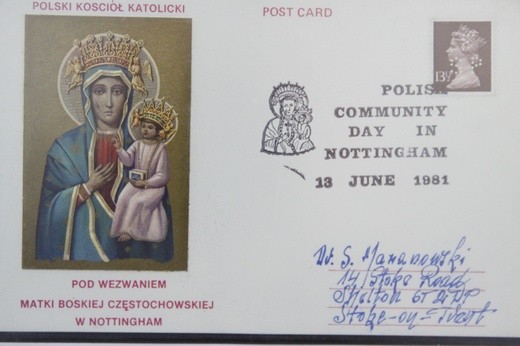 POLSKI KOSCIÓŁ KATOLICKI
POST CARD
13½
POLISH
COMMUNITY
DAY IN
NOTTINGHAM
13 JUNE 1981
POD WEZWANIEM
MATKI BOSKIEJ CZĘSTOCHOWSKIEJ
W NOTTINGHAM
S.
14 Stoke Road
Shelton
Stoke-on-Trent